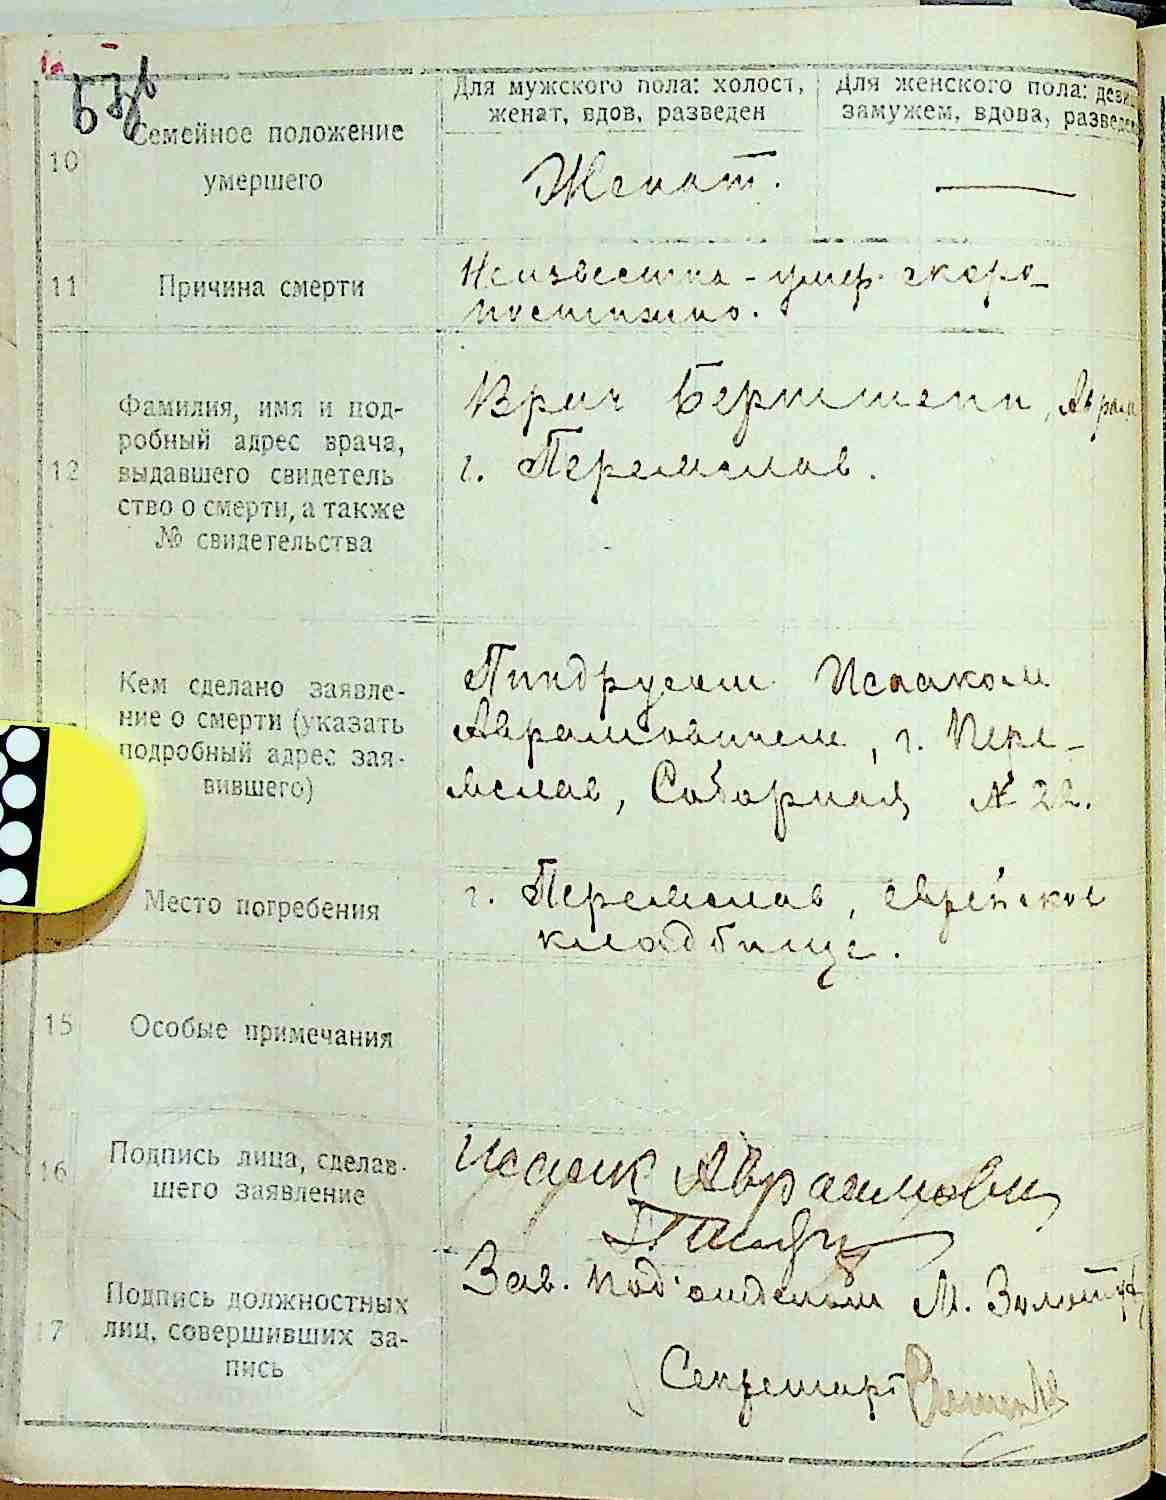 Для мужского пола: холост, женат, вдов, разведен
Для женского пола: девица замужем, вдова, разведена
10
Семейное положение умершего
Женат.
—
11
Причина смерти
Неизвестна - умер скоро-
постижно.
12
Фамилия, имя и под-
робный адрес врача,
выдавшего свидетель
ство о смерти, а также
№ свидетельства
Врач Бернштейн, Абрам
г. Переяслав.
Кем сделано заявле-
ние о смерти (указать
подробный адрес зая-
вившего)
Пиндрусом Исааком
Аврамовичем, г. Пере-
яслав, Соборная № 22.
Место погребения
г. Переяслав, еврейское
кладбище.
15
Особые примечания
16
Подпись лица, сделав-
шего заявление
Исаак Авраамович
17
Подпись должностных
лиц, совершивших за-
пись
Зав. под'отделом М.
Секретарь